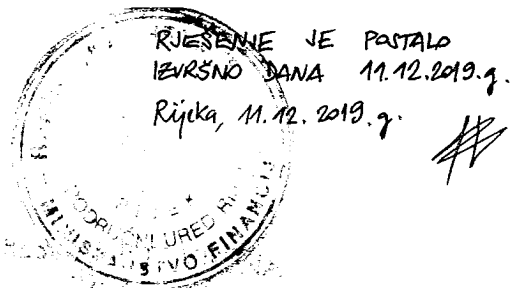 RJEŠENJE JE POSTALO
IZVRŠNO DANA 11.12.2019.g.
Rijeka, 11.12.2019.g.
PODRUČNI URED
MINISTARSTVO FINANCIJA